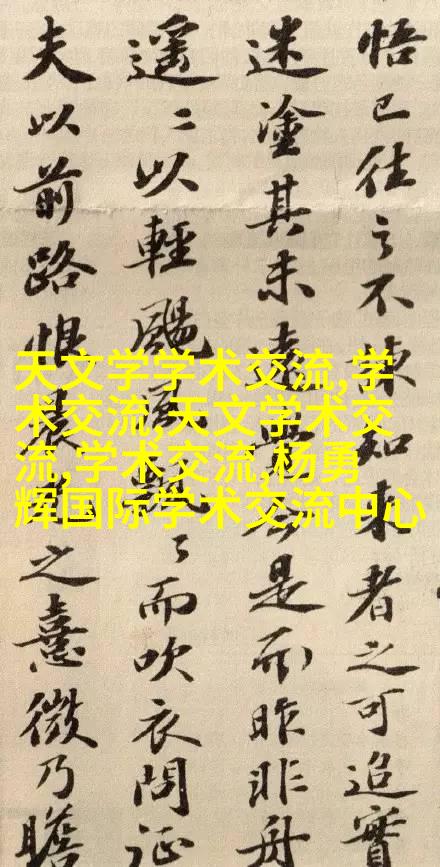 悟已往之不諫知來者之可追實
迷塗其未遠覺今是而昨非舟
遥〻以輕颺風飄〻而吹衣問征
夫以前路恨晨之熹微乃瞻
天文学学术交流,学
术交流,天文学术交
流,学术交流,杨勇
辉国际学术交流中心